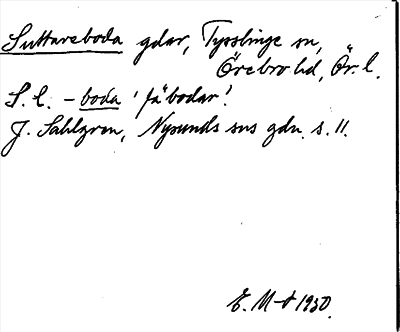 Suttareboda gdar, Tysslinge sn,
Örebro hd, Ör. l.
S. l. - boda 'fäbodar'.
J. Sahlgren, Nysunds sns gdn. s. 11.
E. M-t 1930.